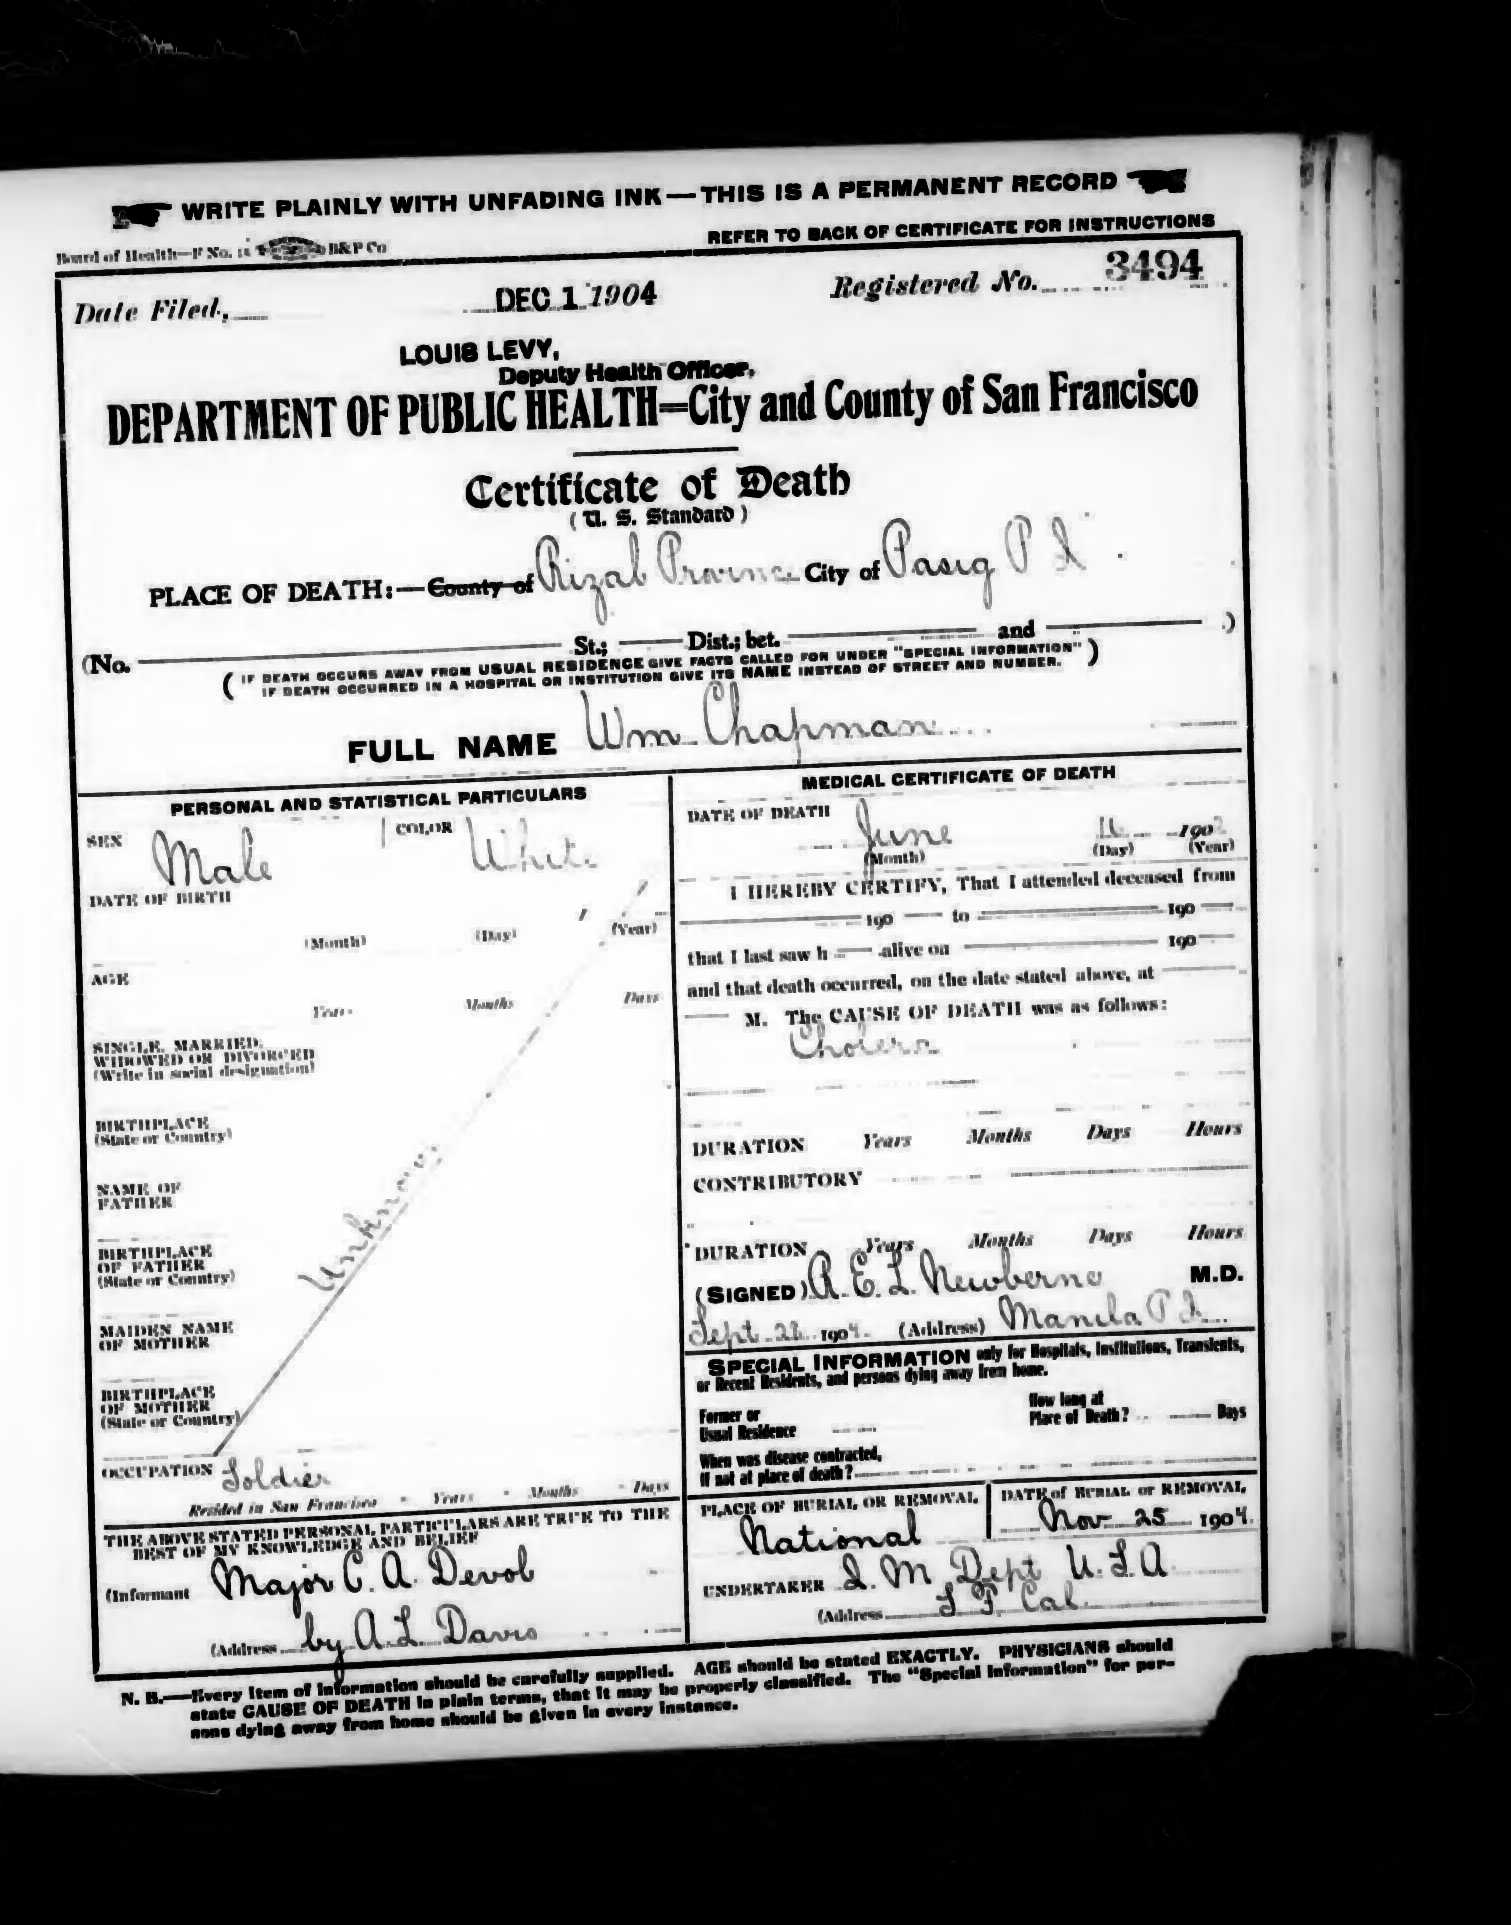 WRITE PLAINLY WITH UNFADING INK — THIS IS A PERMANENT RECORD
Board of Health—F No. B&P Co
REFER TO BACK OF CERTIFICATE FOR INSTRUCTIONS
Date Filed, DEC 1 1904 Registered No. 3494
LOUIS LEVY,
Deputy Health Officer.
DEPARTMENT OF PUBLIC HEALTH—City and County of San Francisco
Certificate of Death
(U. S. Standard)
PLACE OF DEATH:—County of Rizal Provinc City of Pasig P I
(No. St.; Dist.; bet. and )
(IF DEATH OCCURS AWAY FROM USUAL RESIDENCE GIVE FACTS CALLED FOR UNDER "SPECIAL INFORMATION"
IF DEATH OCCURRED IN A HOSPITAL OR INSTITUTION GIVE ITS NAME INSTEAD OF STREET AND NUMBER.)
FULL NAME Wm Chapman
PERSONAL AND STATISTICAL PARTICULARS
SEX Male COLOR White
DATE OF BIRTH
(Month) (Day) (Year)
AGE
Years Months Days
SINGLE, MARRIED,
WIDOWED OR DIVORCED
(Write in social designation)
BIRTHPLACE
(State or Country)
NAME OF
FATHER
Unknown
BIRTHPLACE
OF FATHER
(State or Country)
MAIDEN NAME
OF MOTHER
BIRTHPLACE
OF MOTHER
(State or Country)
OCCUPATION Soldier
Resided in San Francisco Years Months Days
THE ABOVE STATED PERSONAL PARTICULARS ARE TRUE TO THE
BEST OF MY KNOWLEDGE AND BELIEF
(Informant Major C. A. Devol
(Address by A. L. Davis
MEDICAL CERTIFICATE OF DEATH
DATE OF DEATH
June 190
(Month) (Day) (Year)
I HEREBY CERTIFY, That I attended deceased from
190 to 190
that I last saw h alive on 190
and that death occurred, on the date stated above, at
M. The CAUSE OF DEATH was as follows:
Cholera
DURATION Years Months Days Hours
CONTRIBUTORY
DURATION Years Months Days Hours
(SIGNED) R. E. L. Newberne M.D.
Sept 28 1904 (Address) Manila P I
SPECIAL INFORMATION only for Hospitals, Institutions, Transients,
or Recent Residents, and persons dying away from home.
Former or
Usual Residence
How long at
Place of Death? Days
When was disease contracted,
If not at place of death?
PLACE OF BURIAL OR REMOVAL
National
DATE of BURIAL or REMOVAL
Nov 25 1904
UNDERTAKER Q. M Dept U. S. A
(Address S F. Cal
N. B.—Every item of information should be carefully supplied. AGE should be stated EXACTLY. PHYSICIANS should
state CAUSE OF DEATH in plain terms, that it may be properly classified. The "Special Information" for per-
sons dying away from home should be given in every instance.